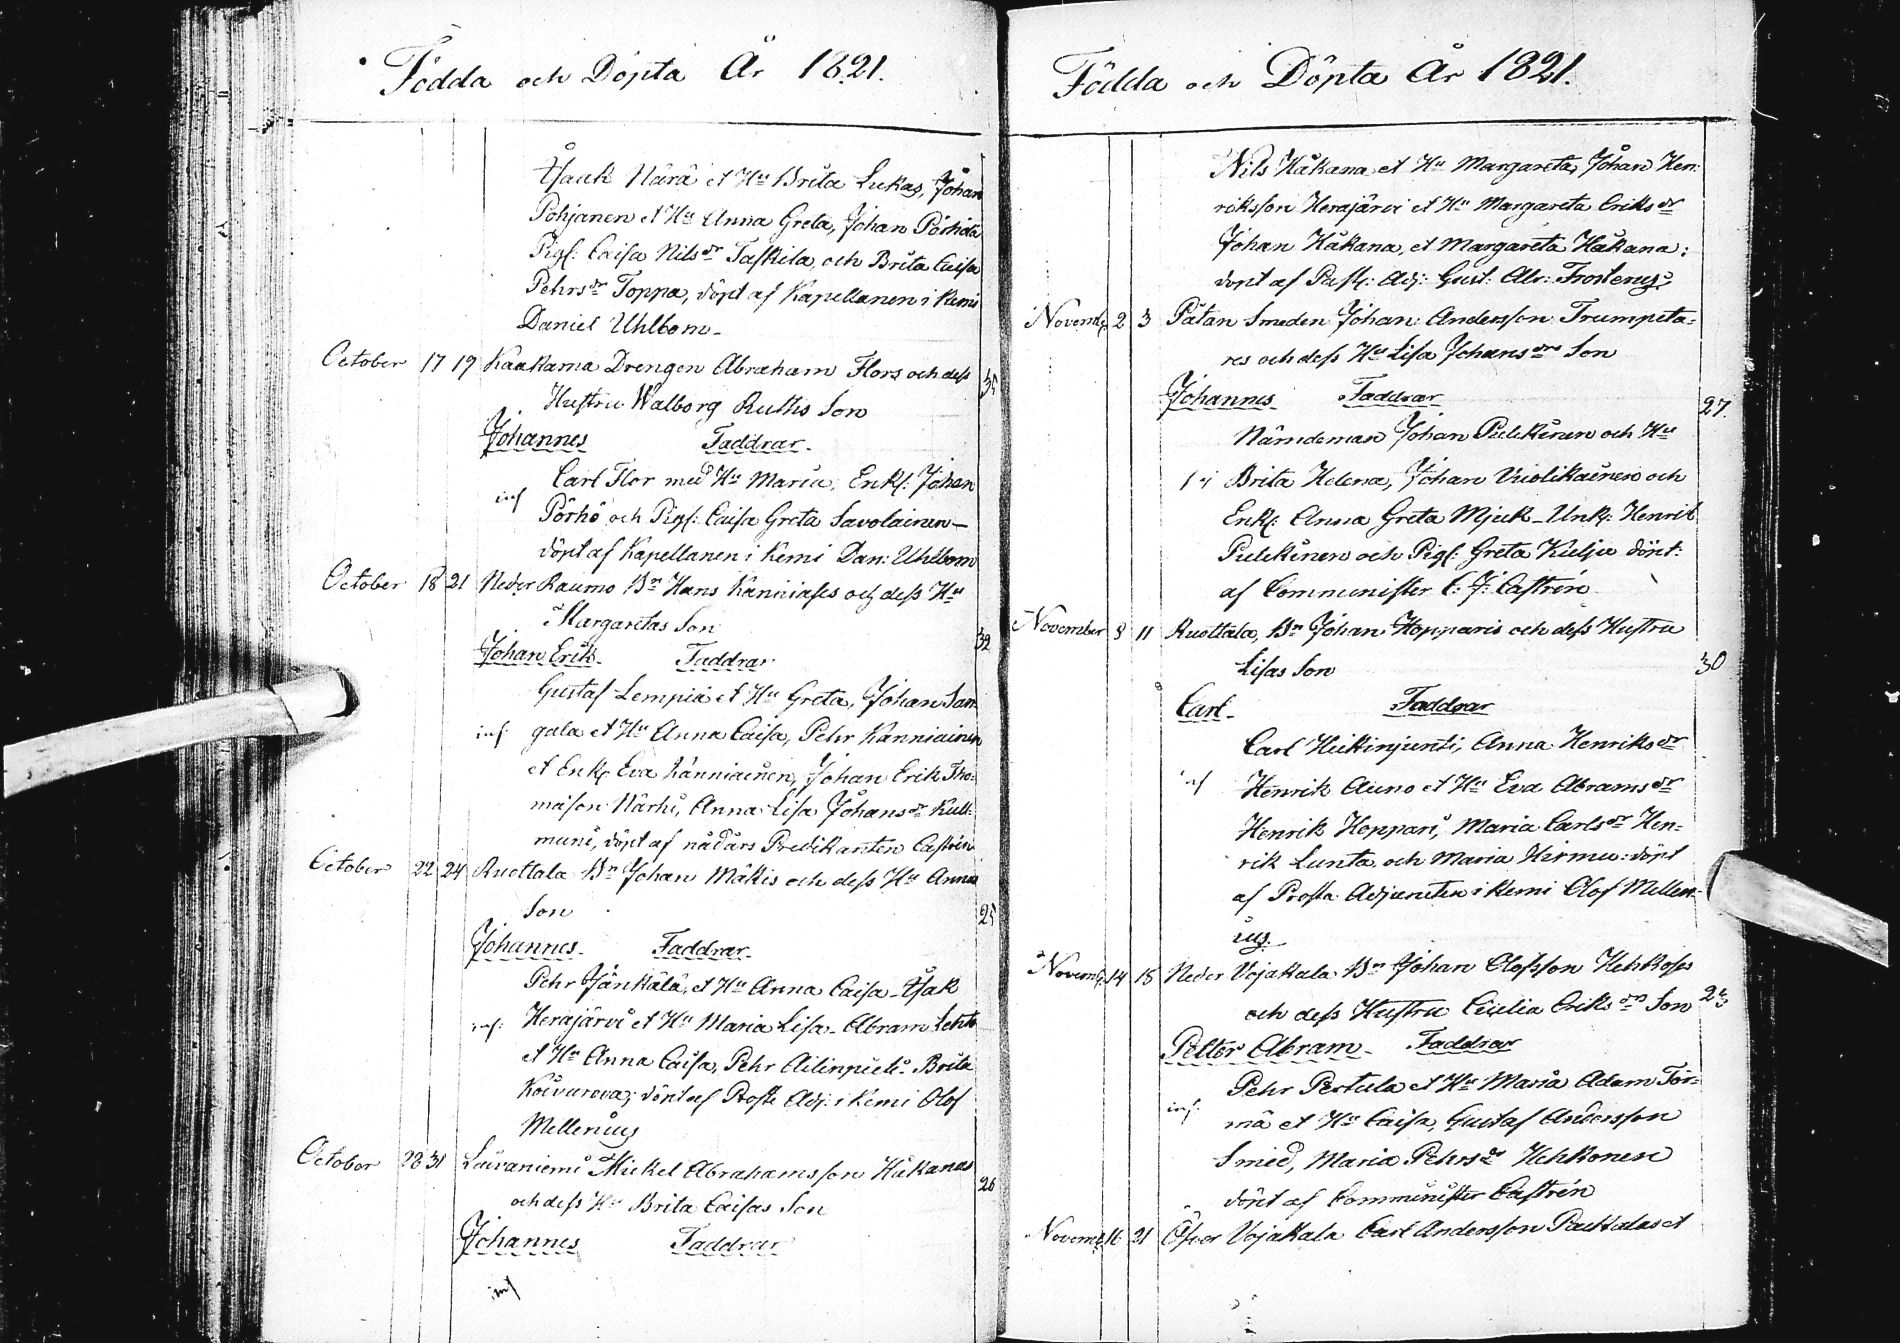 Födda och Döpta År 1821.
Isaak Närä et Hu Brita Lukas, Johan
Pohjanen et Hu Anna Greta, Johan Pörhölä
Pigf: Caisa Nilsdr Taskila, och Brita Caisa
Pehrsdr Toppa, döpt af Kapellanen i Kemi
Daniel Uhlbom
October 17 19 Kaakama Drengen Abraham Flors och dess
Hustru Walborg Ruths Son 35
Johannes Faddrar.
Carl Flor med Hu Maria, Enkl: Johan
inf Pörhö och Pigf: Caisa Greta Savolainen
döpt af Kapellanen i Kemi Dan: Uhlbom
October 18 21 Neder Raumo Bn Hans Kanniaises och dess Hu
Margaretas Son 32
Johan Erik Faddrar
Gustaf Lempiä et Hu Greta, Johan San
inf gala et Hu Anna Caisa, Pehr Kanniainen
et Enk: Eva Känniäinen, Johan Erik Tho-
mason Närhi, Anna Lisa Johansdr Kult-
muni, döpt af nådårs Predikanten Castrén
October 22 24 Ruottala Bn Johan Mäkis och dess Hu Annas
Son 25
Johannes Faddrar
Pehr Jänkälä, et Hu Anna Caisa Isak
inf: Herajärvi et Hu Maria Lisa Abram Lehto
et Hu Anna Caisa, Pehr Ailinpieti Brita
Koivurova; döpt af Proste Adj: i Kemi Olof
Mellenius
October 28 31 Laivaniemi Mickel Abrahamsson Håkanas
och dess Hu Brita Caisas Son 26
Johannes Faddrar
inf
Födda och Döpta År 1821.
Nils Håkana et Hu Margareta, Johan Hen-
riksson Herajärvi et Hu Margareta Eriksdr
Johan Håkana, et Margareta Håkana:
döpt af Past: Adj: Gust: Alr: Frosterus
Novemb: 2 3 Pätan Smeden Johan Andersson Trumpeta-
res och dess Hu Lisa Johansdrs Son
Johannes Faddrar 27.
Nämndeman Johan Pulkkinen och Hu
Brita Helena, Johan Vuolikainen och
Enk: Anna Greta Mjuk Unk: Henrik
Pulkkinen och Pigf: Greta Kulju döpt:
af Comminister C: J: Castrén
November 8 11 Ruottala, Bn Johan Hopparis och dess Hustru
Lisas Son 30
Carl Faddrar
Carl Hietinjunti, Anna Henriksdr
inf Henrik Auno et Hu Eva Abramsdr
Henrik Hoppari, Maria Carlsdr Hen-
rik Lunta, och Maria Hirmu: döpt
af Prosta Adjuncten i Kemi Olof Mellen-
ius.
Novemb: 14 18 Neder Vojakala Bn Johan Olofsson Hehkoses
och dess Hustru Cicilia Eriksdrs Son
Petter Abram Faddrar
Pehr Pertula et Hu Maria Adam Tör-
inf: mä et Hu Caisa, Gustaf Andersson
Smed, Maria Pehrsdr Hehkonen
döpt af Comminister Castrén
Novemb: 16 21 Öfver Vojakala Carl Andersson Paekalas et